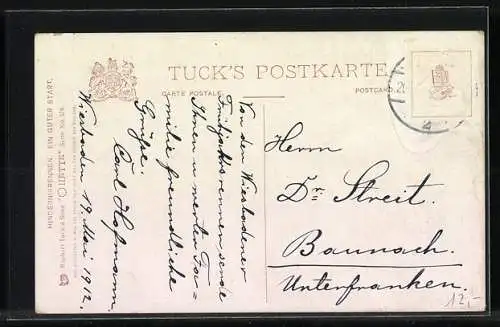 TUCK'S POSTKARTE
CARTE POSTALE.
POSTCARD.
HINDERNISRENNEN. EIN GUTER START.
Raphael Tuck & Sons' "OILETTE" Serie No.
Von den Wiesbadener
Frühjahrsrennen sende
Ihnen u werten Fa=
milie freundliche
Grüsse.
Carl Hofmann
Wiesbaden 19 Mai 1912.
Herrn
Dr Streit.
Baunach.
Unterfranken.
12,-